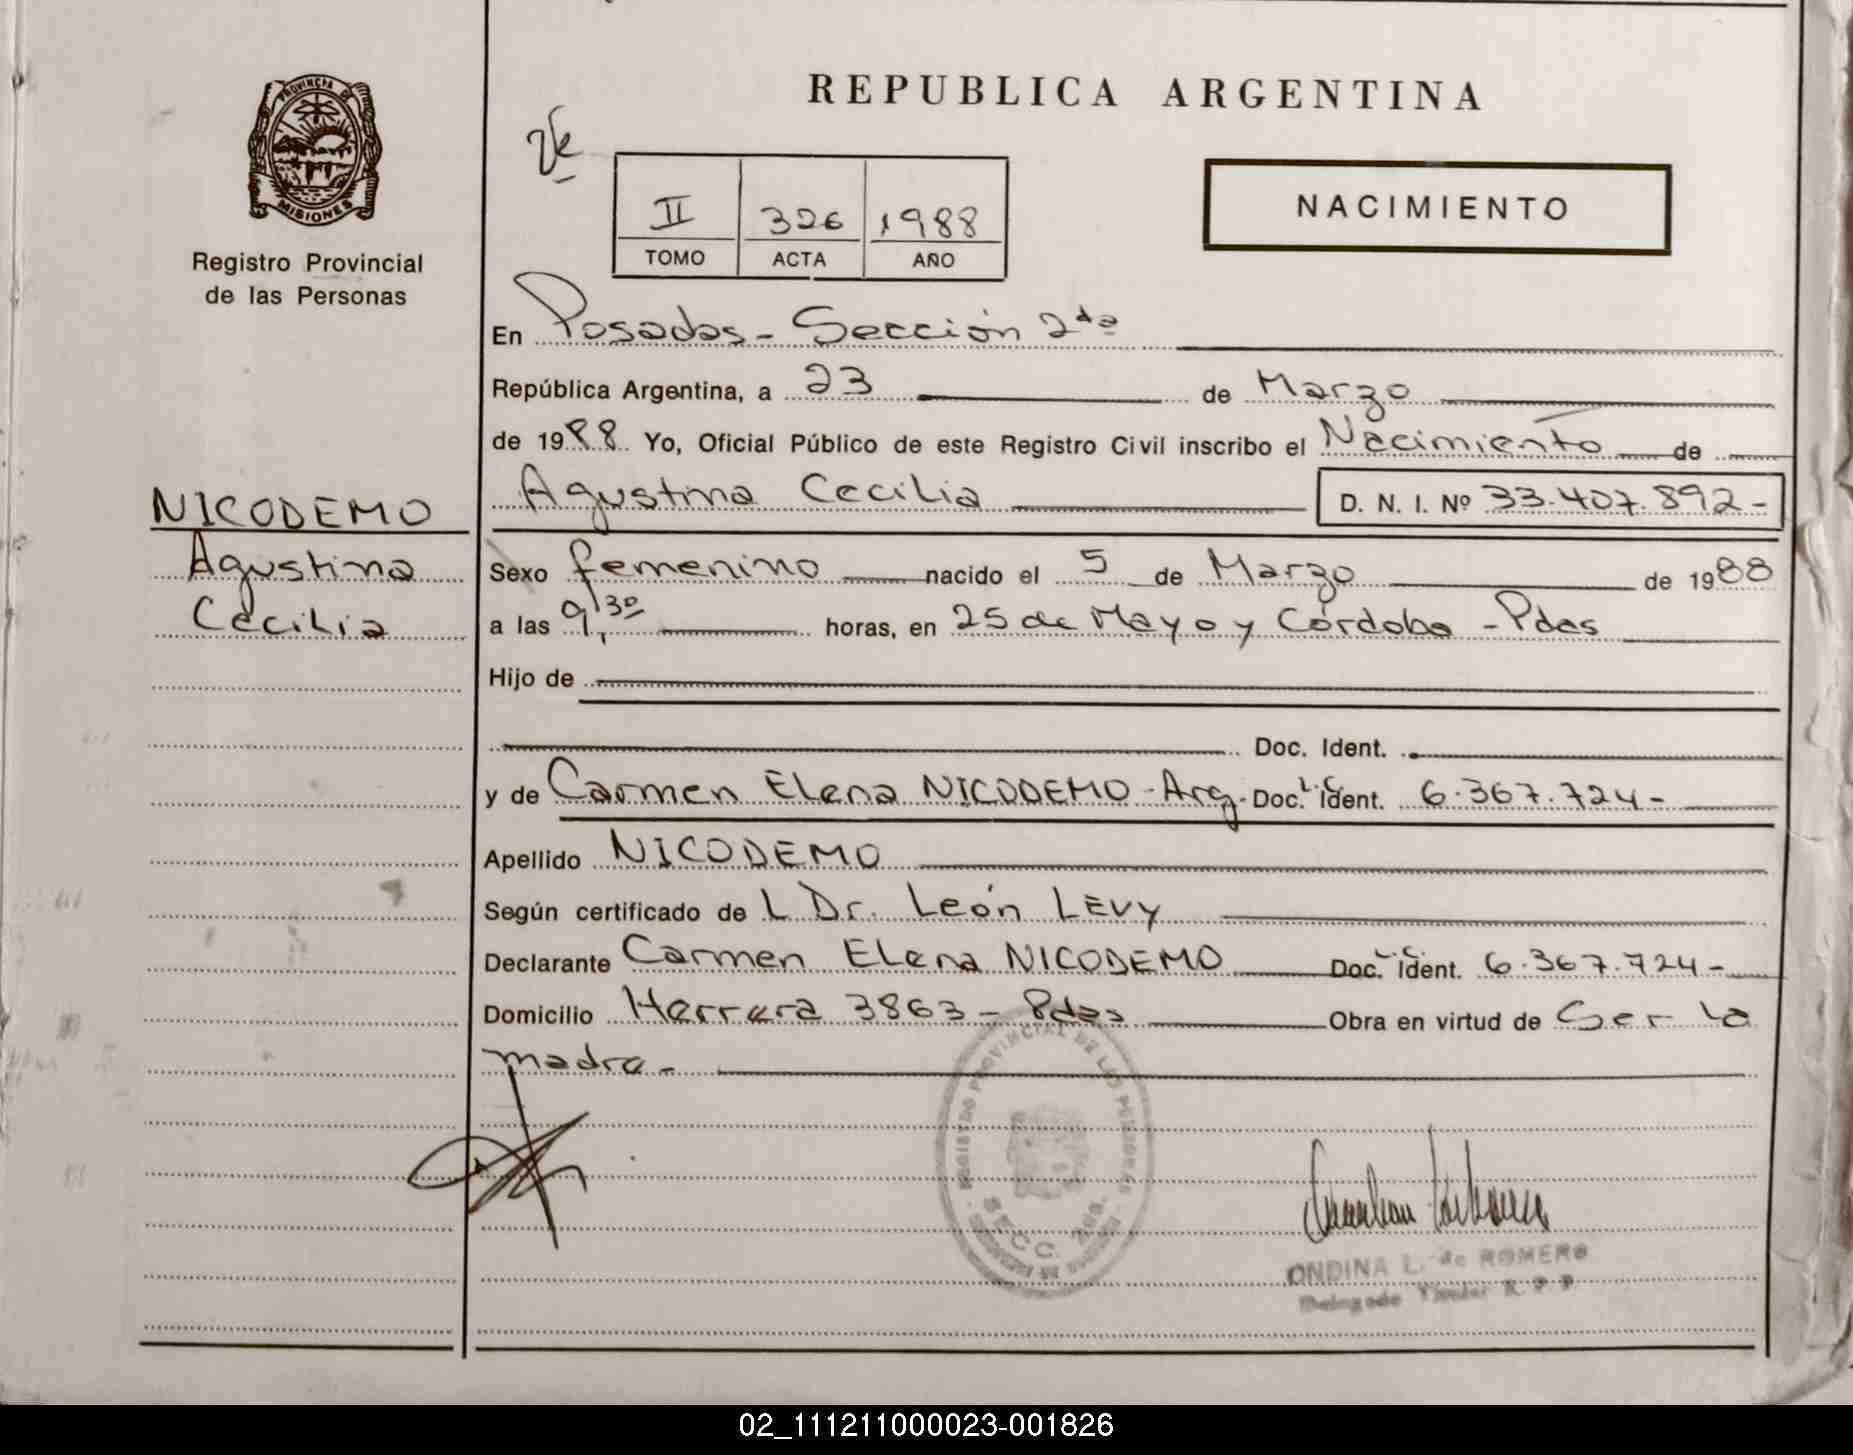 REPUBLICA ARGENTINA
PROVINCIA DE
MISIONES
Registro Provincial
de las Personas
II 326 1988
TOMO ACTA AÑO
NACIMIENTO
En Posadas - Sección 2da
República Argentina, a 23 de Marzo
de 1988 Yo, Oficial Público de este Registro Civil inscribo el Nacimiento de
Agustina Cecilia D. N. I. Nº 33.407.892-
NICODEMO
Agustina
Cecilia
Sexo femenino nacido el 5 de Marzo de 1988
a las 9,30 horas, en 25 de Mayo y Córdoba - Pdas
Hijo de
Doc. Ident.
y de Carmen Elena NICODEMO - Arg. Doc. L.C. Ident. 6.367.724-
Apellido NICODEMO
Según certificado de L Dr. León LEVY
Declarante Carmen Elena NICODEMO Doc. L.C. Ident. 6.367.724-
Domicilio Herrera 3863 - Pdas Obra en virtud de Ser la
madre-
REGISTRO PROVINCIAL DE LAS PERSONAS
SECC. 2da.
ONDINA L. de ROMERO
Delegado Titular R. P. P.
02_111211000023-001826